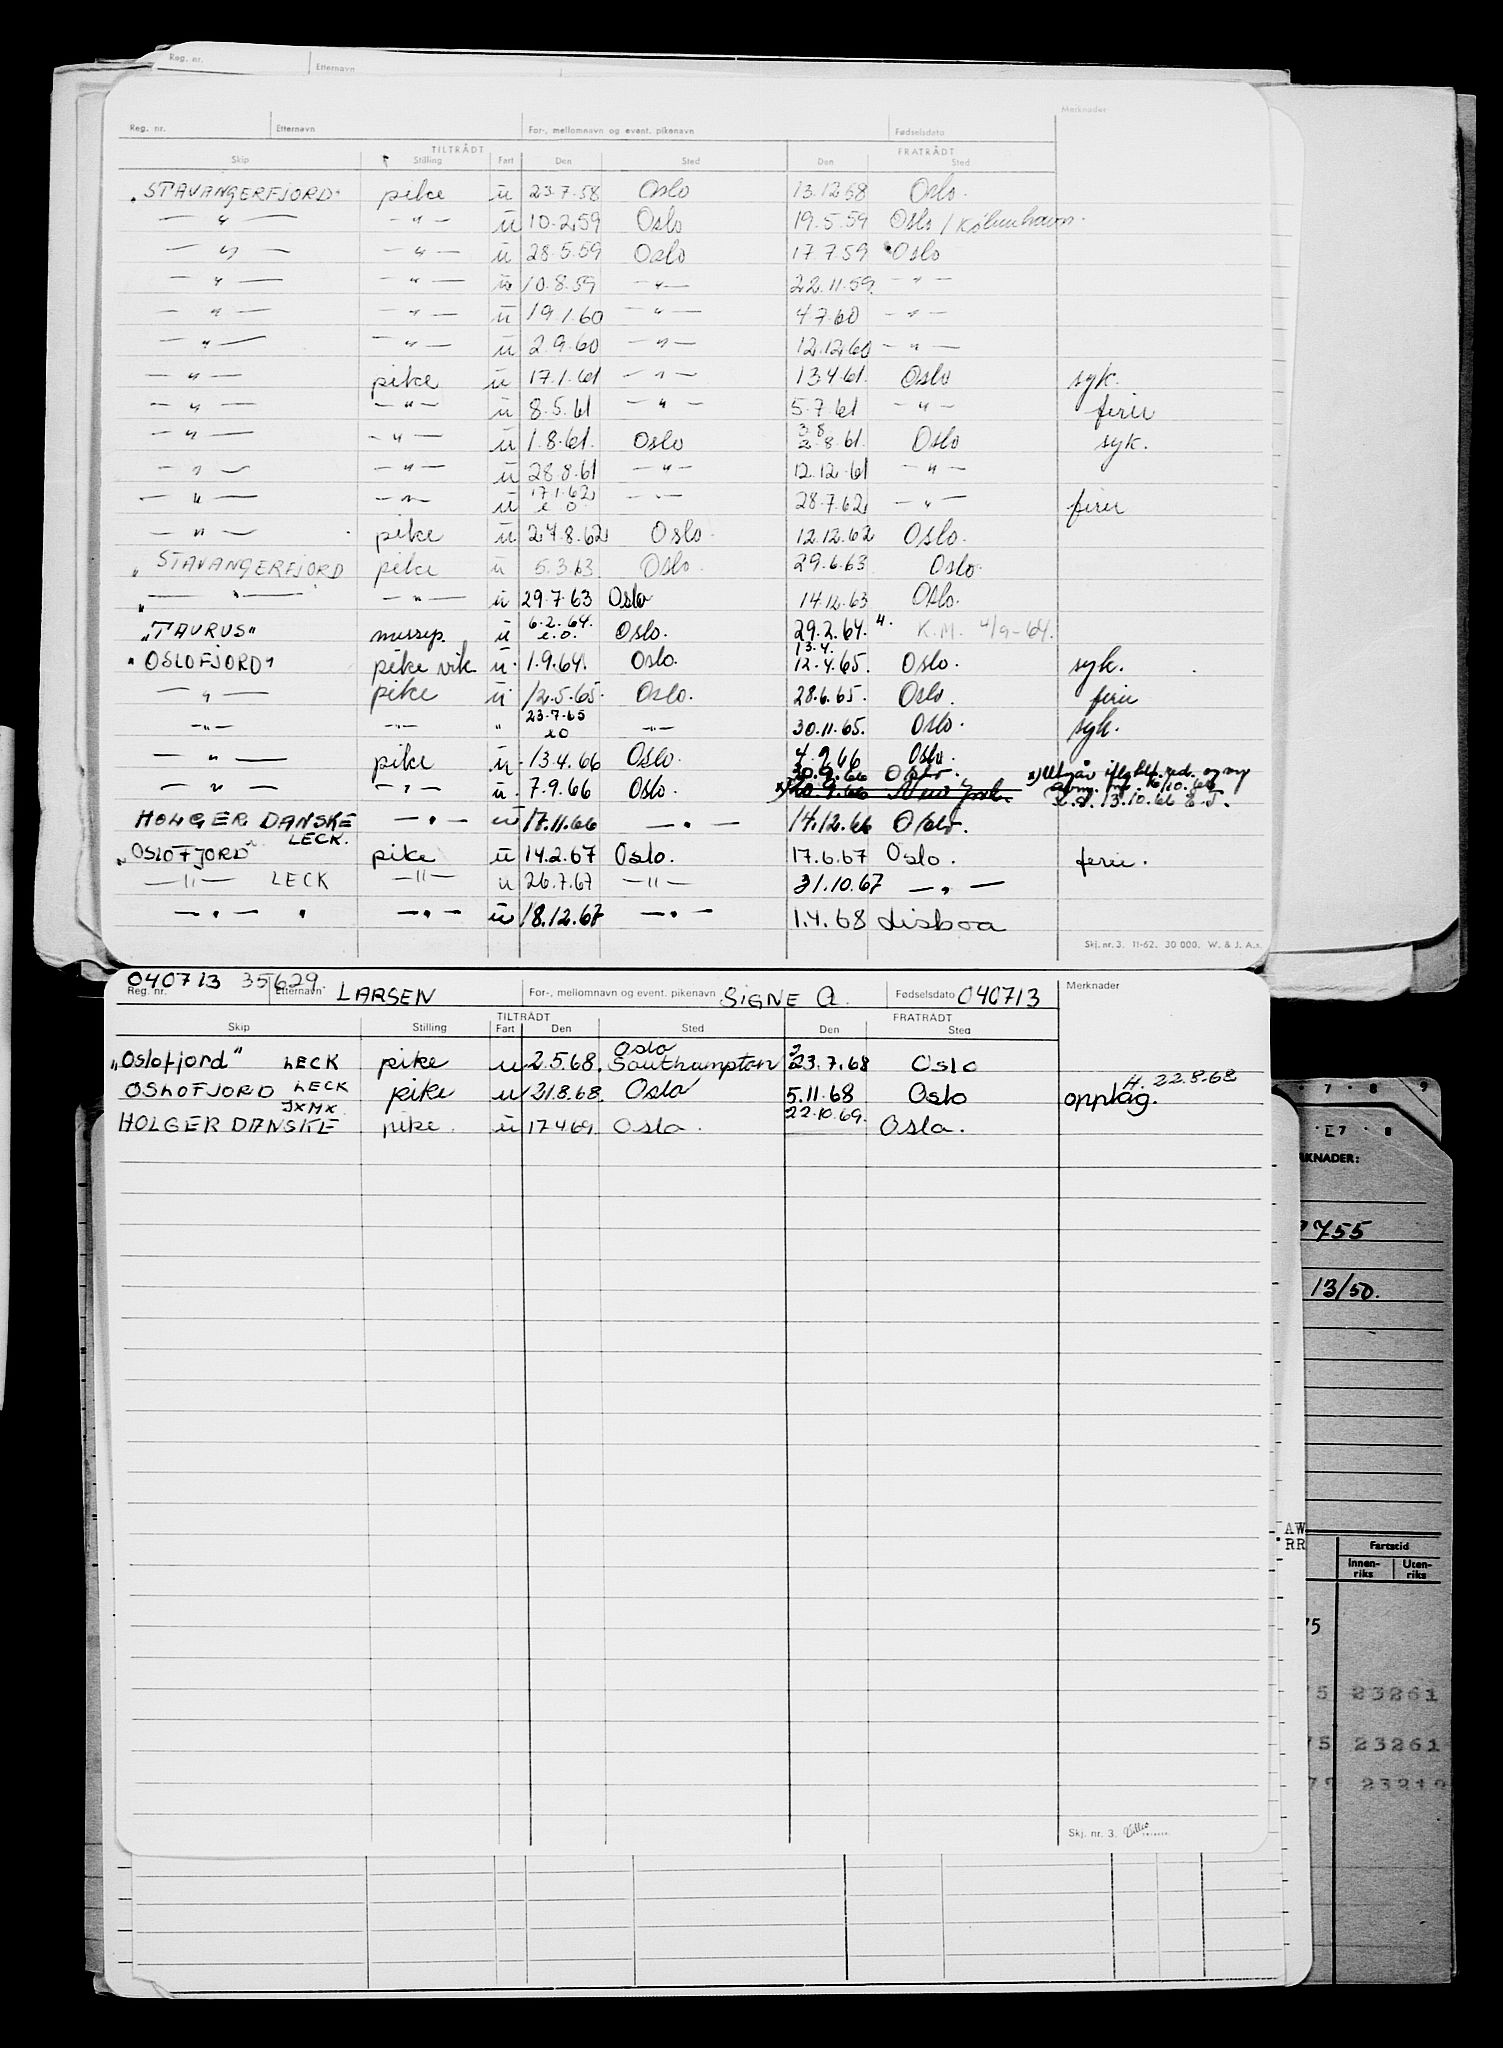 Reg. nr. Etternavn
Merknader
Reg. nr. Etternavn For-, mellomnavn og event. pikenavn Fødselsdato
TILTRÅDT FRATRÅDT
Skip Stilling Fart Den Sted Den Sted
"STAVANGERFJORD" pike u 23.7.58 Oslo 13.12.58 Oslo.
— " — — " — u 10.2.59 Oslo 19.5.59 Oslo / København.
— " — — " — u 28.5.59 Oslo 17.7.59 Oslo
— " — — " — u 10.8.59 — " — 22.11.59. — " —
— " — — " — u 19.1.60 — " — 4.7.60 — " —
— " — — " — u 2.9.60 — " — 12.12.60 — " —
— " — pike u 17.1.61 — " — 13.4.61. Oslo syk.
— " — — " — u 8.5.61 — " — 5.7.61 — " — ferie
— " — — " — u 1.8.61. Oslo 3.8 2.8.61. Oslo syk.
— " — — " — u 28.8.61 — " — 12.12.61 — " —
— " — — " — u 17.1.62 e.o. — " — 28.7.62 — " — ferie
— " — pike u 24.8.62 Oslo. 12.12.62 Oslo.
"STAVANGERFJORD pike u 5.3.63. Oslo. 29.6.63 Oslo.
" — " — — " — u 29.7.63 Oslo 14.12.63 Oslo.
"TAURUS" messep. u 6.2.64. e.o. Oslo. 29.2.64. ". K.M. 4/9-64.
"OSLOFJORD" pike vik u. 1.9.64. Oslo. 13.4. 12.4.65. Oslo. syk.
— " — pike u. 12.5.65. Oslo. 28.6.65. Oslo. ferie
— " — — " — " 23.7.65 eo — " — 30.11.65. Oslo. syk.
— " — pike u. 13.4.66 Oslo. 4.9.66 Oslo.
— " — — " — u. 7.9.66 Oslo. 30.9.66 Oslo. x) 20.9.66 New York. x) Utgår 13.10.66
HOLGER DANSKE — " — u 17.11.66 — " — 14.12.66 Oslo.
LECK.
"OSLOFJORD" pike u 14.2.67 Oslo. 17.6.67 Oslo. ferie.
— " — LECK — " — u 26.7.67 — " — 31.10.67 — " —
— " — " — " — u 18.12.67 — " — 1.4.68 Lisboa
Skj. nr. 3. 11-62. 30 000. W. & J. A.s.
040713 35629.
Reg. nr. Etternavn LARSEN For-, mellomnavn og event. pikenavn SIGNE A. Fødselsdato 040713 Merknader
TILTRÅDT FRATRÅDT
Skip Stilling Fart Den Sted Den Sted
"Oslofjord" LECK pike u 2.5.68. Oslo Southampton 23.7.68 Oslo
OSLOFJORD LECK pike u 31.8.68. Oslo 5.11.68 Oslo opplag. H. 22.8.68
JXMX
HOLGER DANSKE pike. u 17.4.69. Oslo. 22.10.69. Oslo.
Skj. nr. 3.
7 8 9
7 8
KNADER:
755
13/50.
AW
RR
Fartstid
Innen-riks Uten-riks
75
75 23261
75 23261